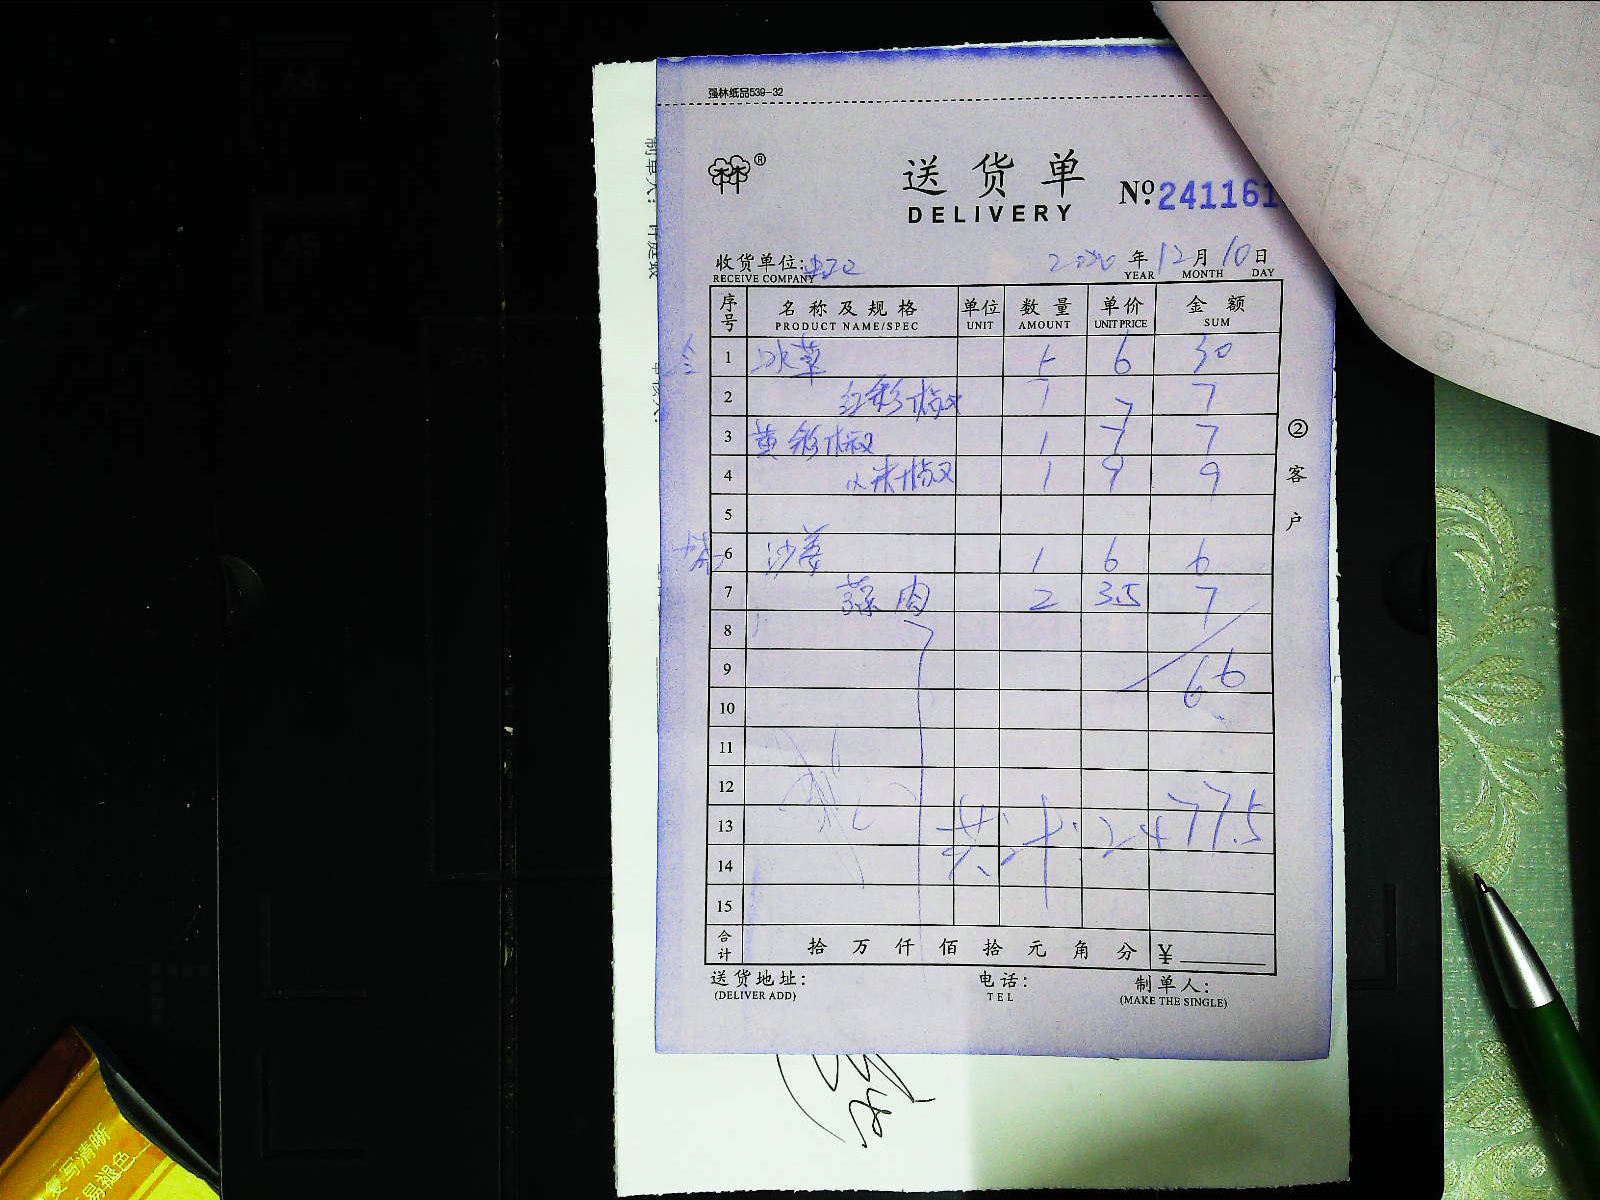 强林纸品539-32
®
送货单
DELIVERY
№ 241161
收货单位:
2020年12月10日
RECEIVE COMPANY YEAR MONTH DAY
序号 名称及规格 单位 数量 单价 金额
PRODUCT NAME/SPEC UNIT AMOUNT UNIT PRICE SUM
1 冰草 5 6 30
2 红彩椒 1 7 7
3 黄彩椒 1 7 7
4 小米椒 1 9 9
5
6 沙姜 1 6 6
7 蒜肉 2 3.5 7
8
9 66
10
11
12
13 共计:2477.5
14
15
合计 拾万仟佰拾元角分 ¥
②客户
送货地址: 电话: 制单人:
(DELIVER ADD) TEL (MAKE THE SINGLE)
制单人:
复写清晰
易褪色